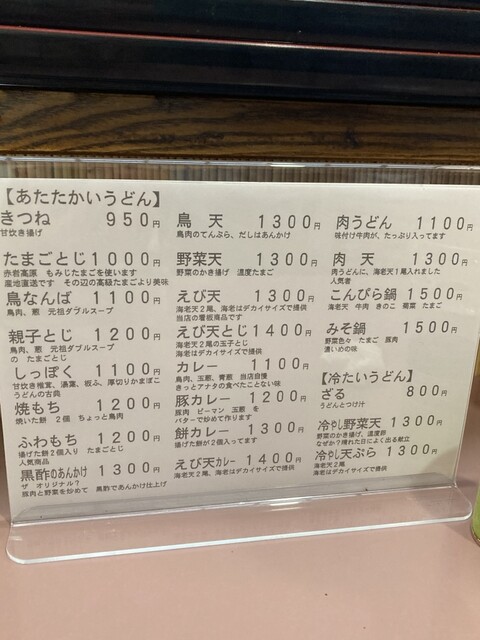 【あたたかいうどん】
きつね 950円
甘炊き揚げ
たまごとじ 1000円
赤岩高原 もみじたまごを使います
産地直送です その辺の高級たまごより美味
鳥なんば 1100円
鳥肉、葱 元祖ダブルスープ
親子とじ 1200円
鳥肉、葱 元祖ダブルスープ
の たまごとじ
しっぽく 1100円
甘炊き椎茸、湯葉、板ふ、厚切りかまぼこ
うどんの古典
焼もち 1200円
焼いた餅 2個 ちょっと鳥肉
ふわもち 1200円
揚げた餅2個入り たまごとじ
人気商品
黒酢のあんかけ 1300円
ザ オリジナル?
豚肉と野菜を炒めて 黒酢であんかけ仕上げ
鳥天 1300円
鳥肉のてんぷら、だしはあんかけ
野菜天 1300円
野菜のかき揚げ 温度たまご
えび天 1300円
海老天2尾、海老はデカイサイズで提供
当店の看板商品です
えび天とじ 1400円
海老天2尾の玉子とじ
海老はデカイサイズで提供
カレー 1100円
鳥肉、玉葱、青葱 当店自慢
きっとアナタの食べたことない味
豚カレー 1200円
豚肉 ピーマン 玉葱 を
バターで炒めて作ります
餅カレー 1300円
揚げた餅が2個入ってます
えび天カレー 1400円
海老天2尾、海老はデカイサイズで提供
肉うどん 1100円
味付け牛肉が、たっぷり入ってます
肉天 1300円
肉うどんに、海老天1尾入れました
人気者
こんぴら鍋 1500円
海老天 牛肉 きのこ 菊菜 たまご
みそ鍋 1500円
野菜色々 たまご 豚肉
濃いめの味
【冷たいうどん】
ざる 800円
うどんとつけ汁
冷やし野菜天 1300円
野菜のかき揚げ、温度卵
なぜか?晴れた日によく出る献立
冷やし天ぷら 1300円
海老天2尾
海老はデカイサイズで提供